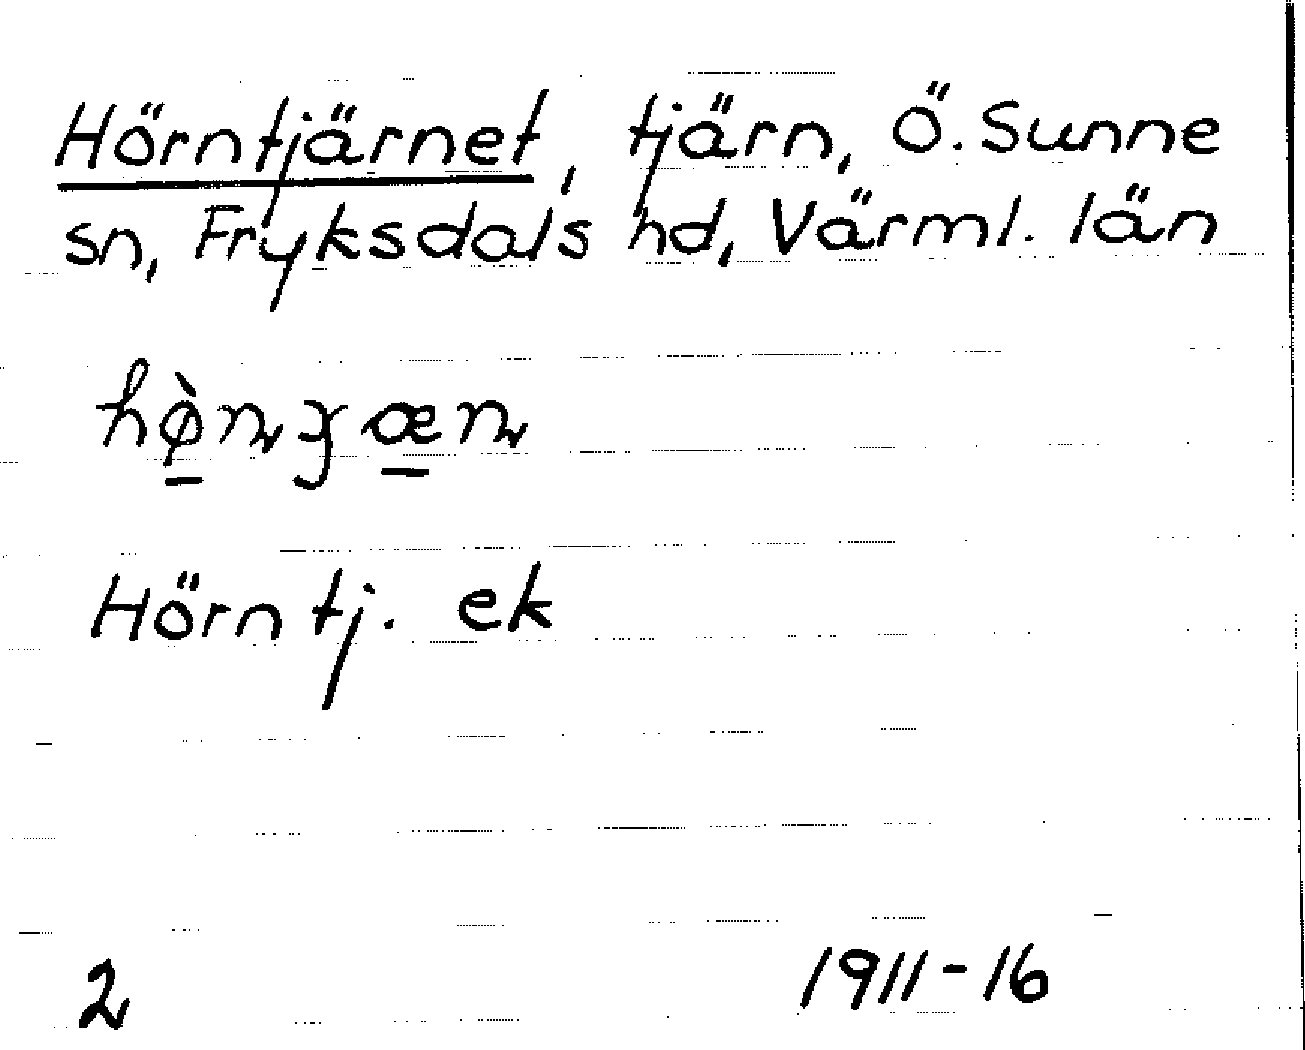 Hörntjärnet, tjärn, Ö. Sunne
sn, Fryksdals hd, Värml. län
Hörntj. ek
2
1911-16